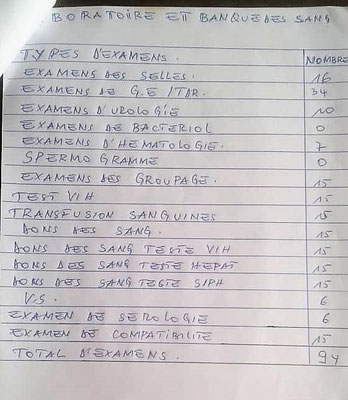 BORATOIRE ET BANQUE DES SANG
TYPES D'EXAMENS. NOMBRE
EXAMENS DES SELLES. 16
EXAMENS DE G.E/TDR. 34
EXAMENS D'UROLOGIE 10
EXAMENS DE BACTERIOL 0
EXAMENS D'HEMATOLOGIE. 7
SPERMOGRAMME 0
EXAMENS DES GROUPAGE. 15
TEST VIH 15
TRANSFUSION SANGUINES 15
DONS DES SANG. 15
DONS DES SANG TESTE VIH 15
DONS DES SANG TESTE HEPAT 15
DONS DES SANG TESTE SIPH 15
V.S. 6
EXAMEN DE SEROLOGIE 6
EXAMEN DE COMPATIBILITE 15
TOTAL D'EXAMENS. 94